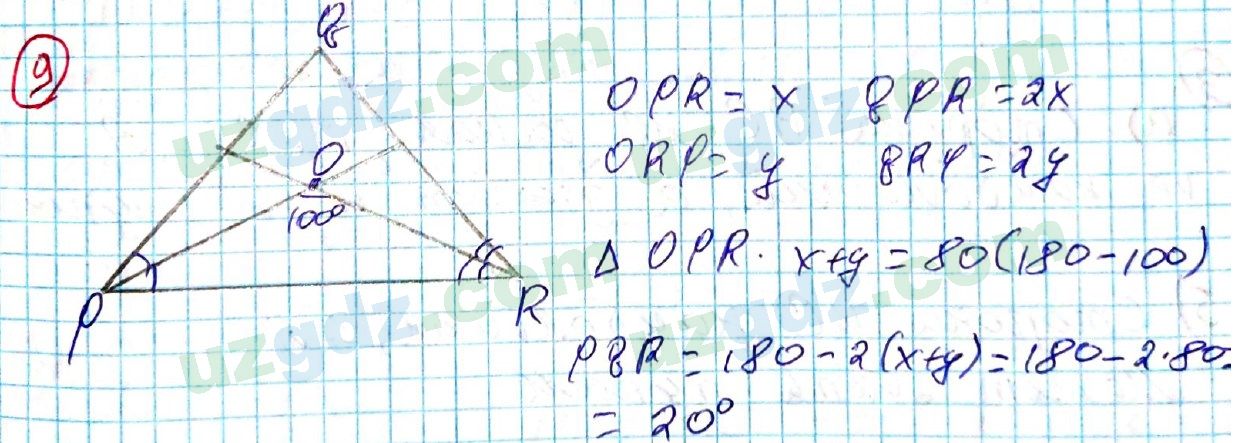 9
Q
O
100°
P
R
OPR = x QPR = 2x
ORP = y QRP = 2y
Δ OPR. x+y = 80(180-100)
PQR = 180 - 2(x+y) = 180 - 2·80 =
= 20°
uzgdz.com
uzgdz.com
uzgdz.com
uzgdz.com